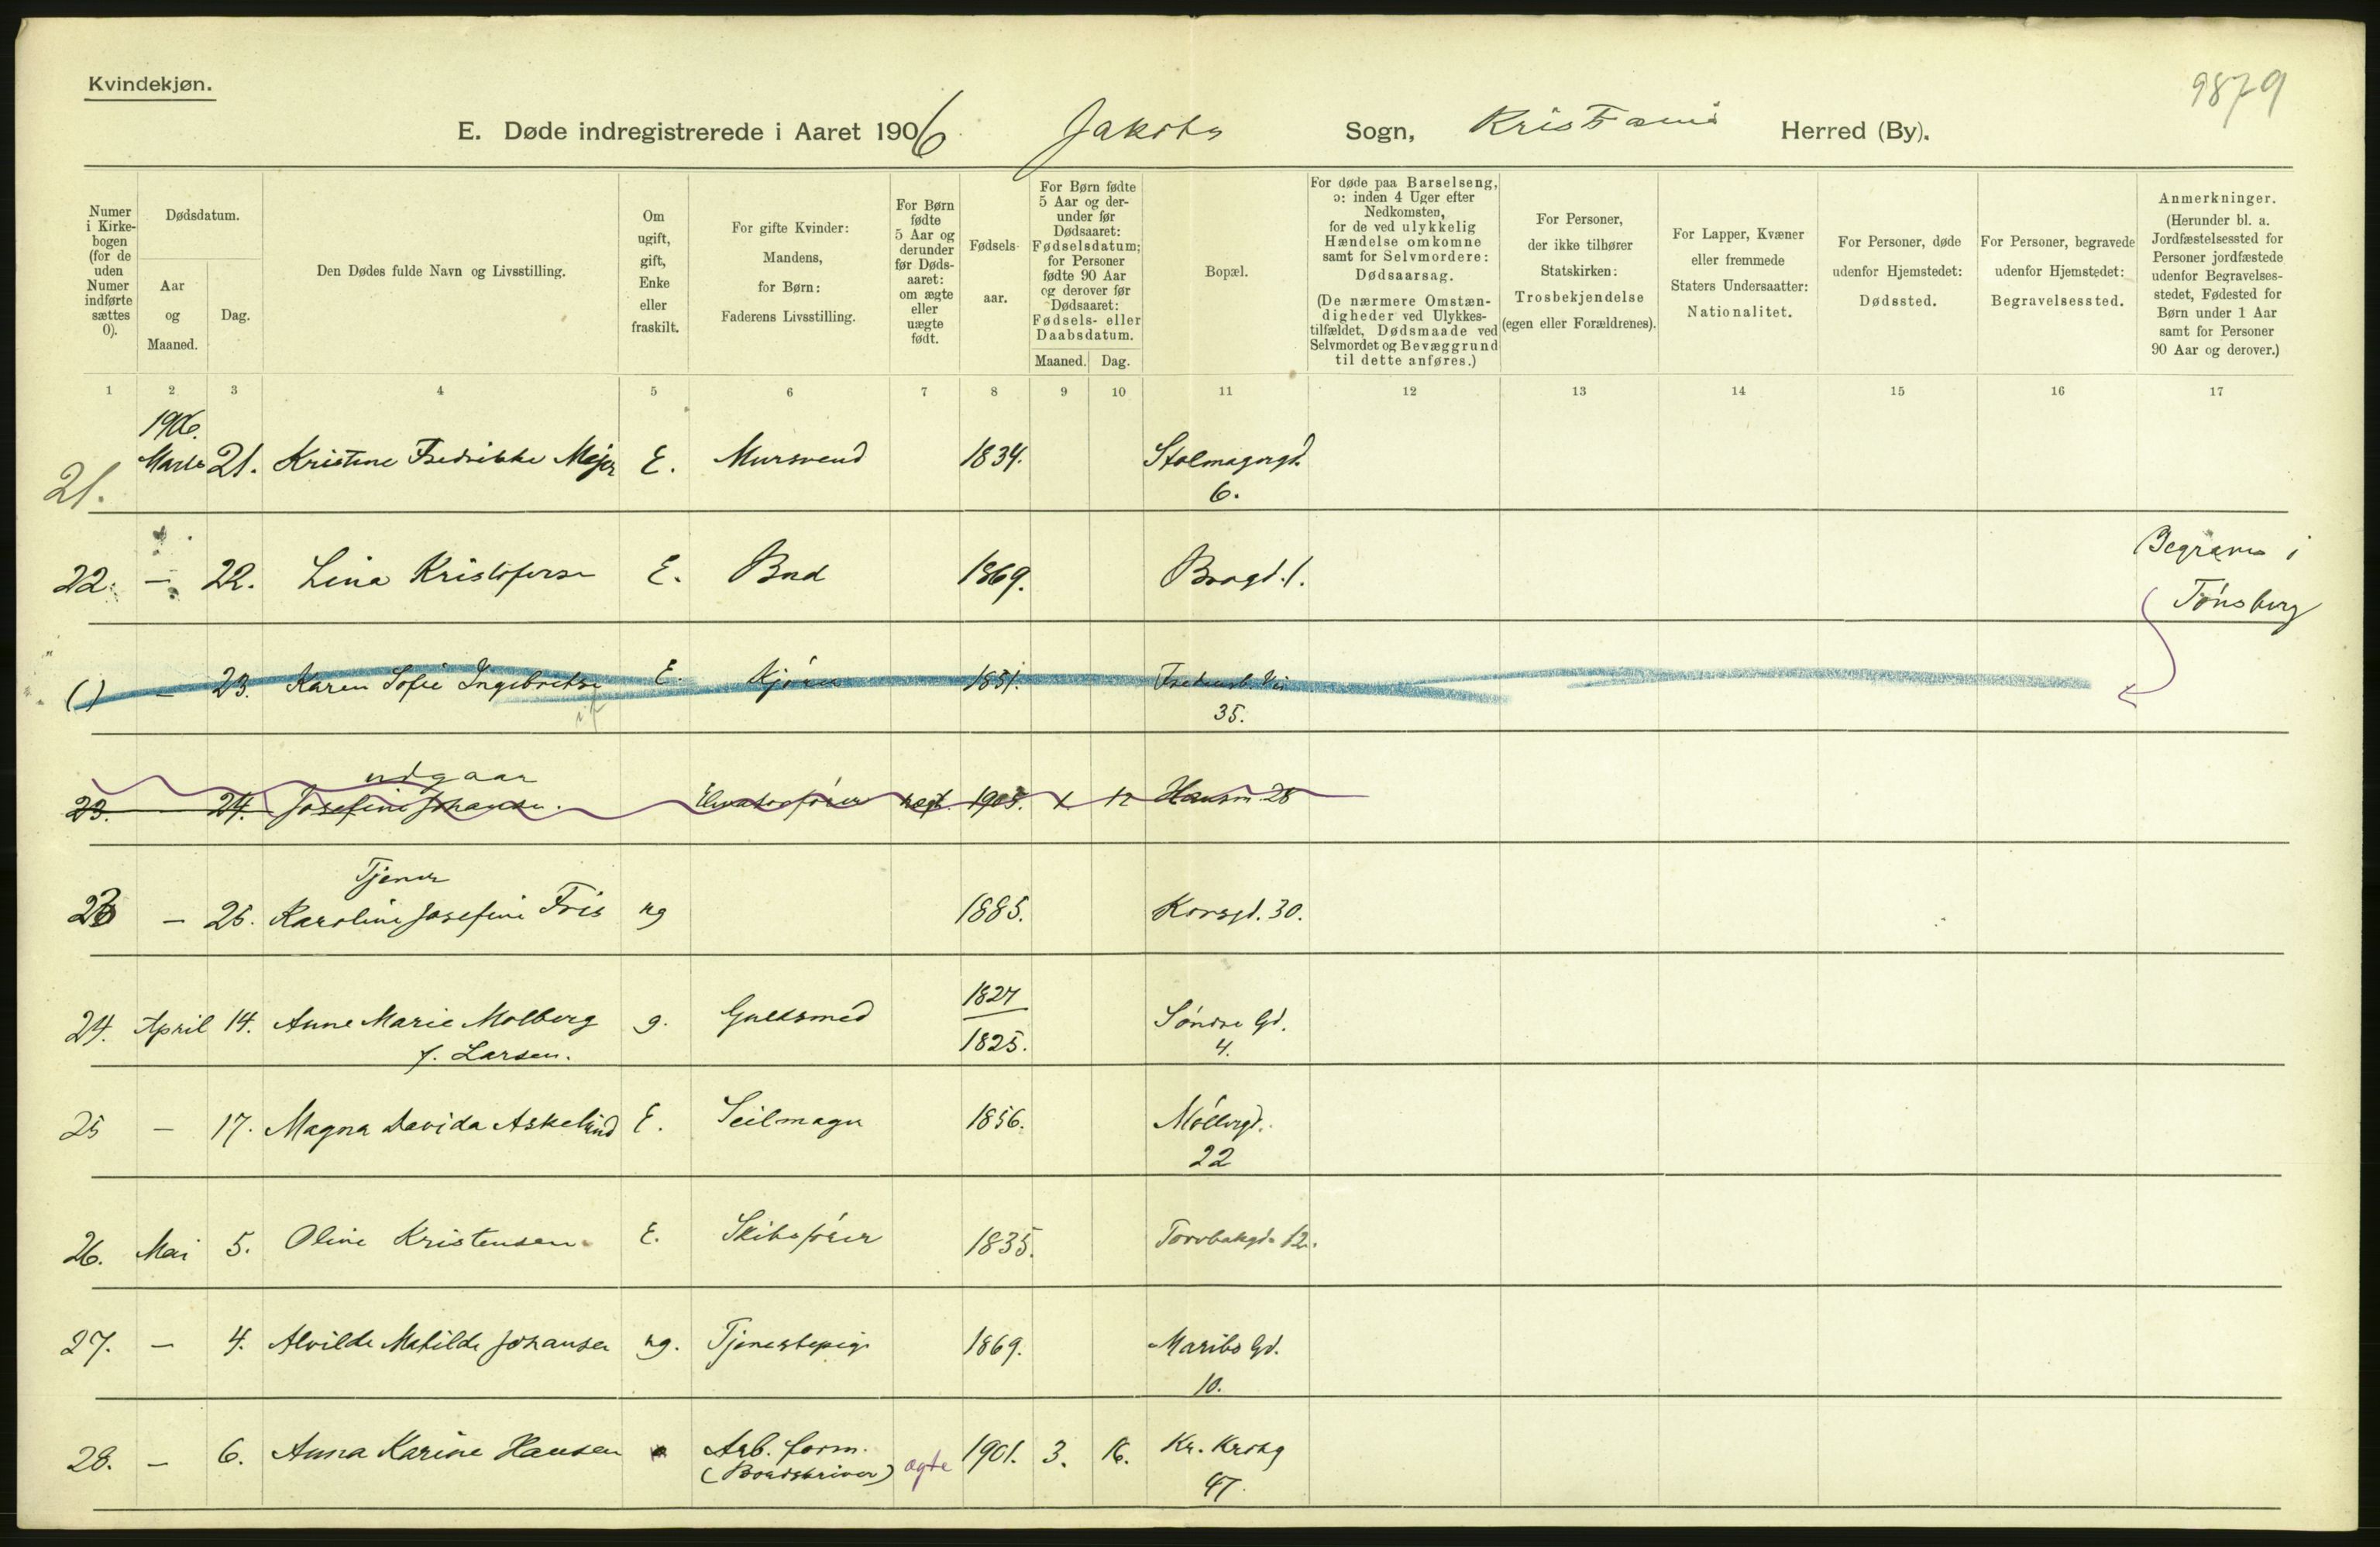 Kvindekjøn.
9879
E. Døde indregistrerede i Aaret 1906 Jakobs Sogn, Kristiania Herred (By).
Numer i Kirke-bogen (for de uden Numer indførte sættes 0).
Dødsdatum.
Aar og Maaned.
Dag.
Den Dødes fulde Navn og Livsstilling.
Om ugift, gift, Enke eller fraskilt.
For gifte Kvinder: Mandens, for Børn: Faderens Livsstilling.
For Børn fødte 5 Aar og derunder før Døds-aaret: om ægte eller uægte født.
Fødsels-aar.
For Børn fødte 5 Aar og der-under før Dødsaaret: Fødselsdatum; for Personer fødte 90 Aar og derover før Dødsaaret: Fødsels- eller Daabsdatum.
Maaned. Dag.
Bopæl.
For døde paa Barselseng, ɔ: inden 4 Uger efter Nedkomsten, for de ved ulykkelig Hændelse omkomne samt for Selvmordere: Dødsaarsag. (De nærmere Omstæn-digheder ved Ulykkes-tilfældet, Dødsmaade ved Selvmordet og Bevæggrund til dette anføres.)
For Personer, der ikke tilhører Statskirken: Trosbekjendelse (egen eller Forældrenes).
For Lapper, Kvæner eller fremmede Staters Undersaatter: Nationalitet.
For Personer, døde udenfor Hjemstedet: Dødssted.
For Personer, begravede udenfor Hjemstedet: Begravelsessted.
Anmerkninger. (Herunder bl. a. Jordfæstelsessted for Personer jordfæstede udenfor Begravelses-stedet, Fødested for Børn under 1 Aar samt for Personer 90 Aar og derover.)
1 2 3 4 5 6 7 8 9 10 11 12 13 14 15 16 17
1906.
21. Marts 21. Kristine Fredrikke Mejer E. Mursvend 1834. Stolmagergd. 6.
22. — 22. Lina Kristofersen E. 1869. Brogd. 1. Begraves i Tønsberg
() — 23. Karen Sofie Ingebretse E. Kjører 1851. 35.
udgaar
23. 24. Josefine Johansen. 1905. 12 Hausm. 28
Tjener
23 — 25. Karoline Josefine Fris ug 1885. Korsgd. 30.
24. April 14. Anne Marie Molberg g. Guldsmed 1827 Søndre Gd.
f. Larsen. 1825. 4.
25 — 17. Magna Davida Askelund E. Seilmager 1856. Møllergd. 22
26. Mai 5. Oline Kristensen E. Skibsfører 1835. Torvbakgd. 12.
27. — 4. Alvilde Matilde Johansen ug. Tjenestepige 1869. Maribo Gd. 10.
28. — 6. Anna Karine Hansen Arb. form. ægte 1901. 3. 16. Kr. Krohg
(Bordskriver) 47.